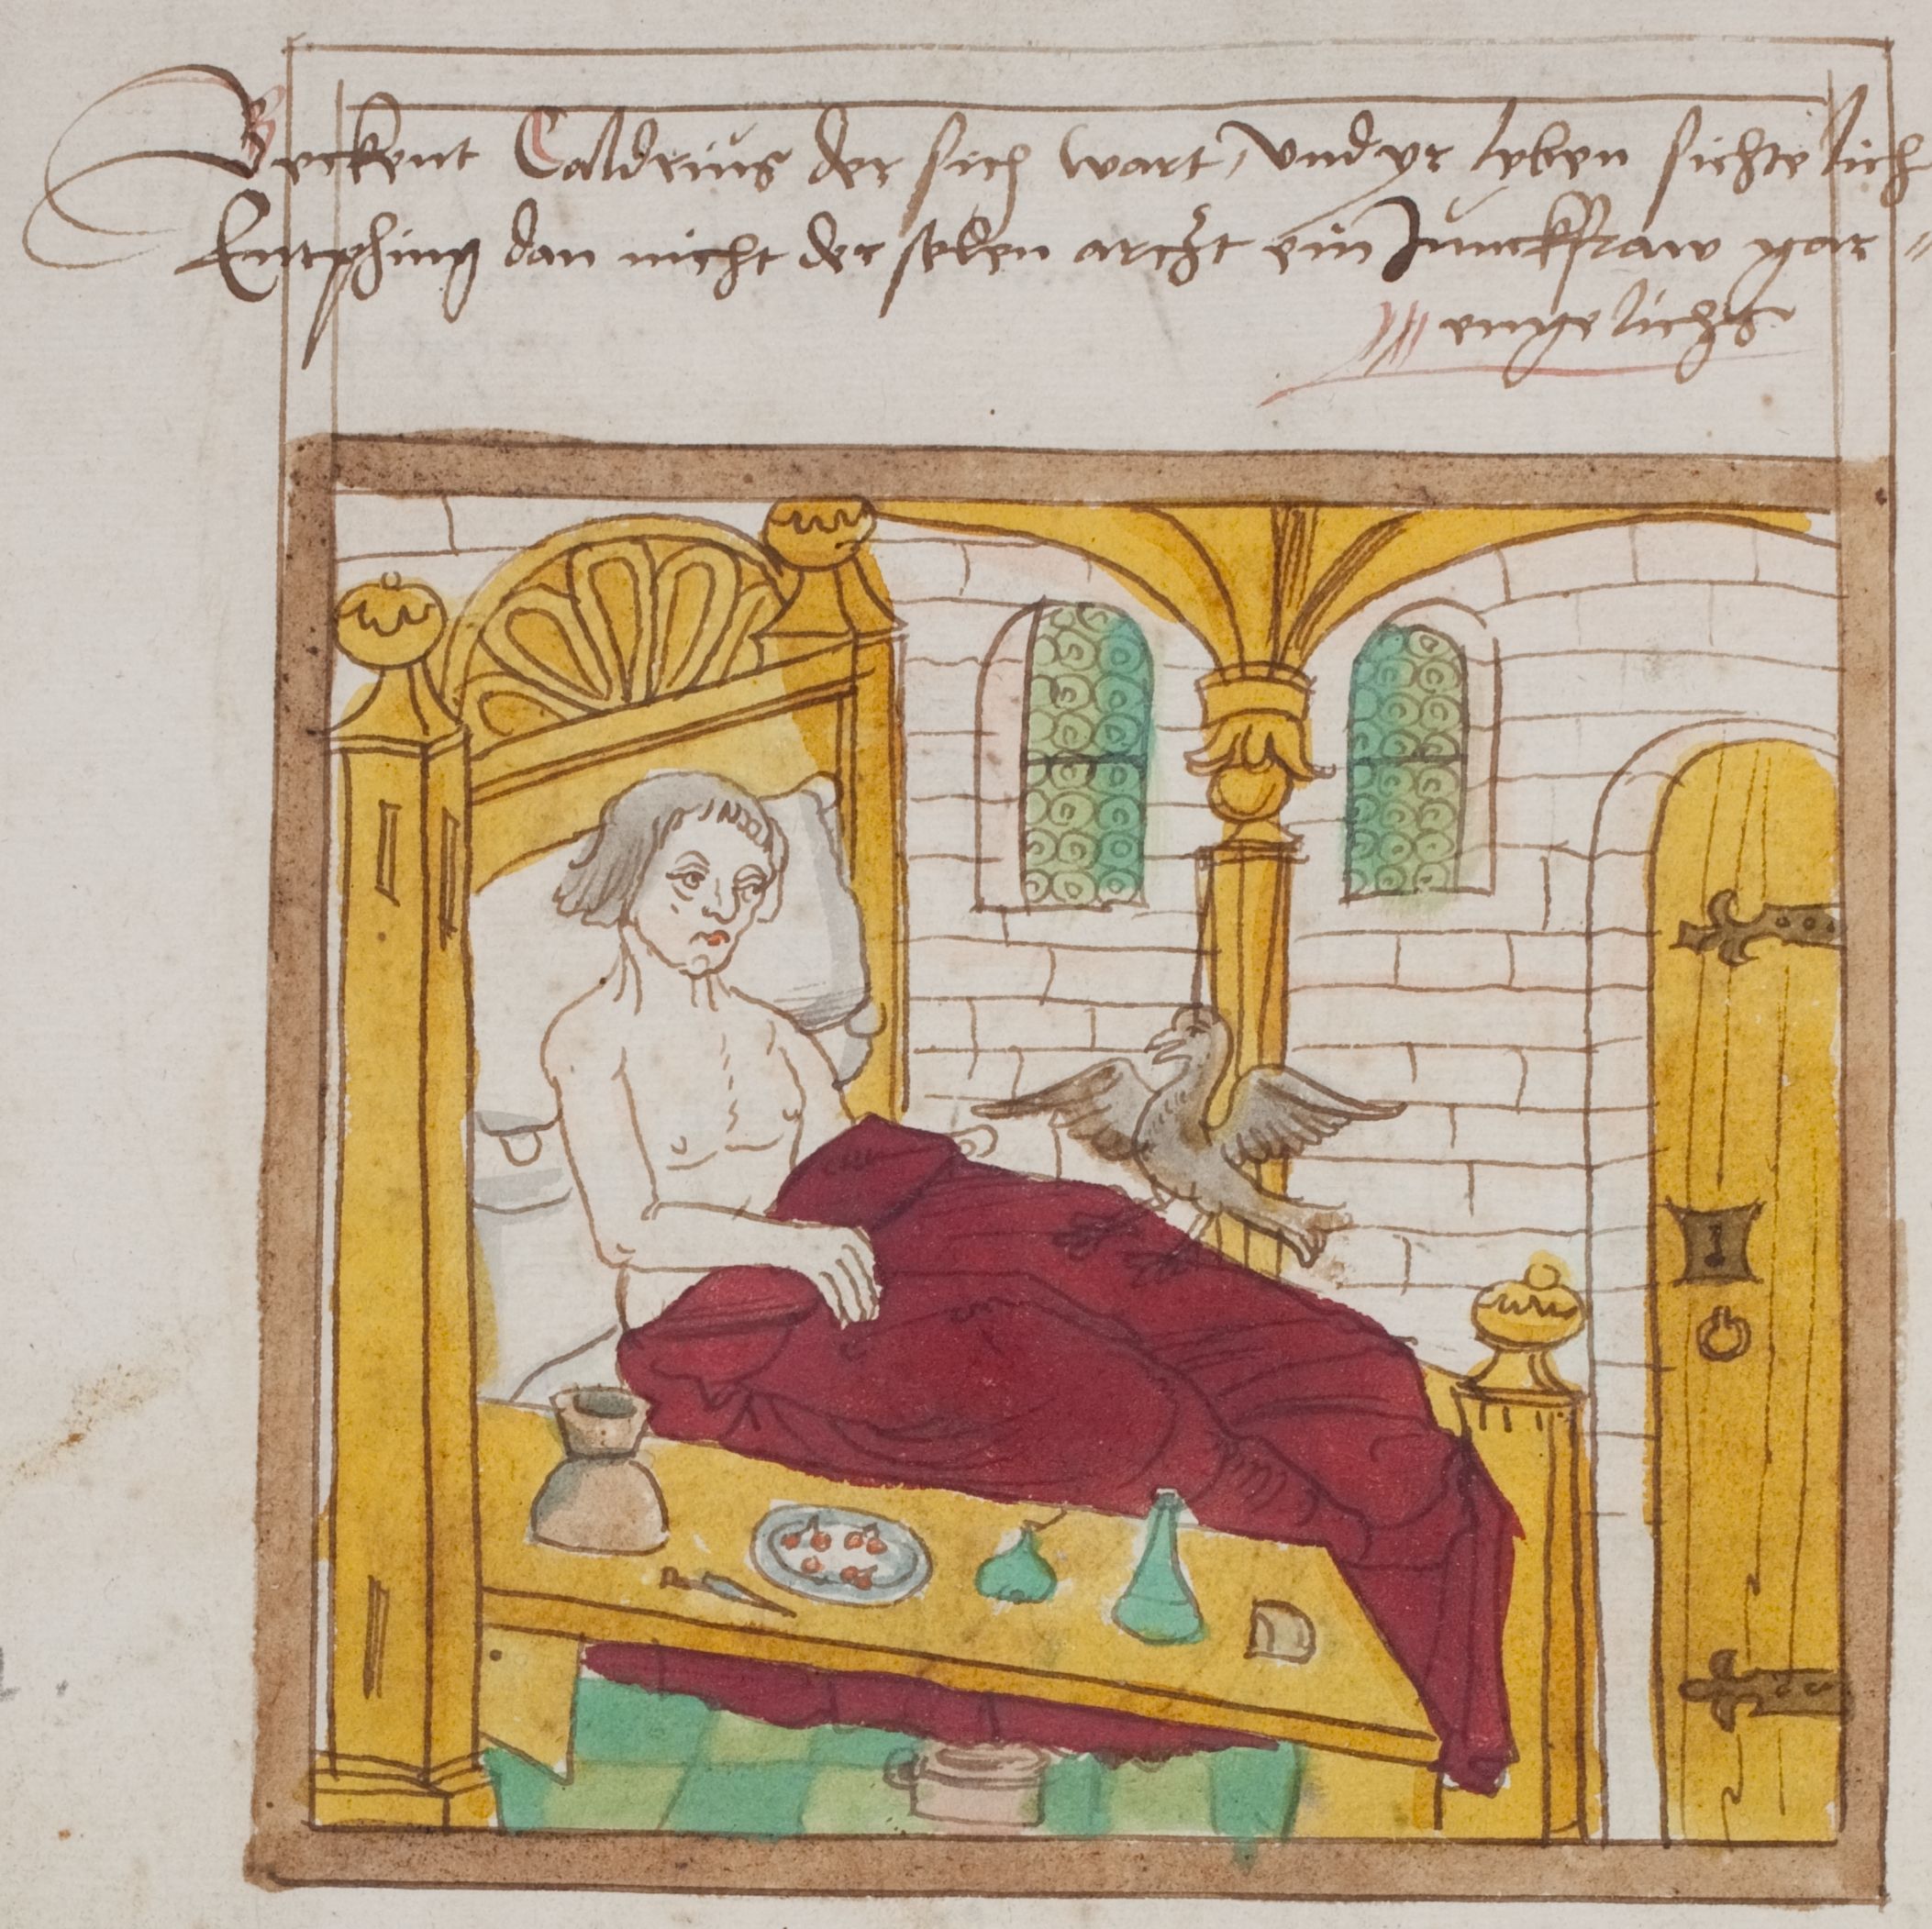 Beckent Caldrius der sich wart, und yr leben sichtelich
Entphing dan nicht der selen arczt ein Junckfraw gar
engelichs